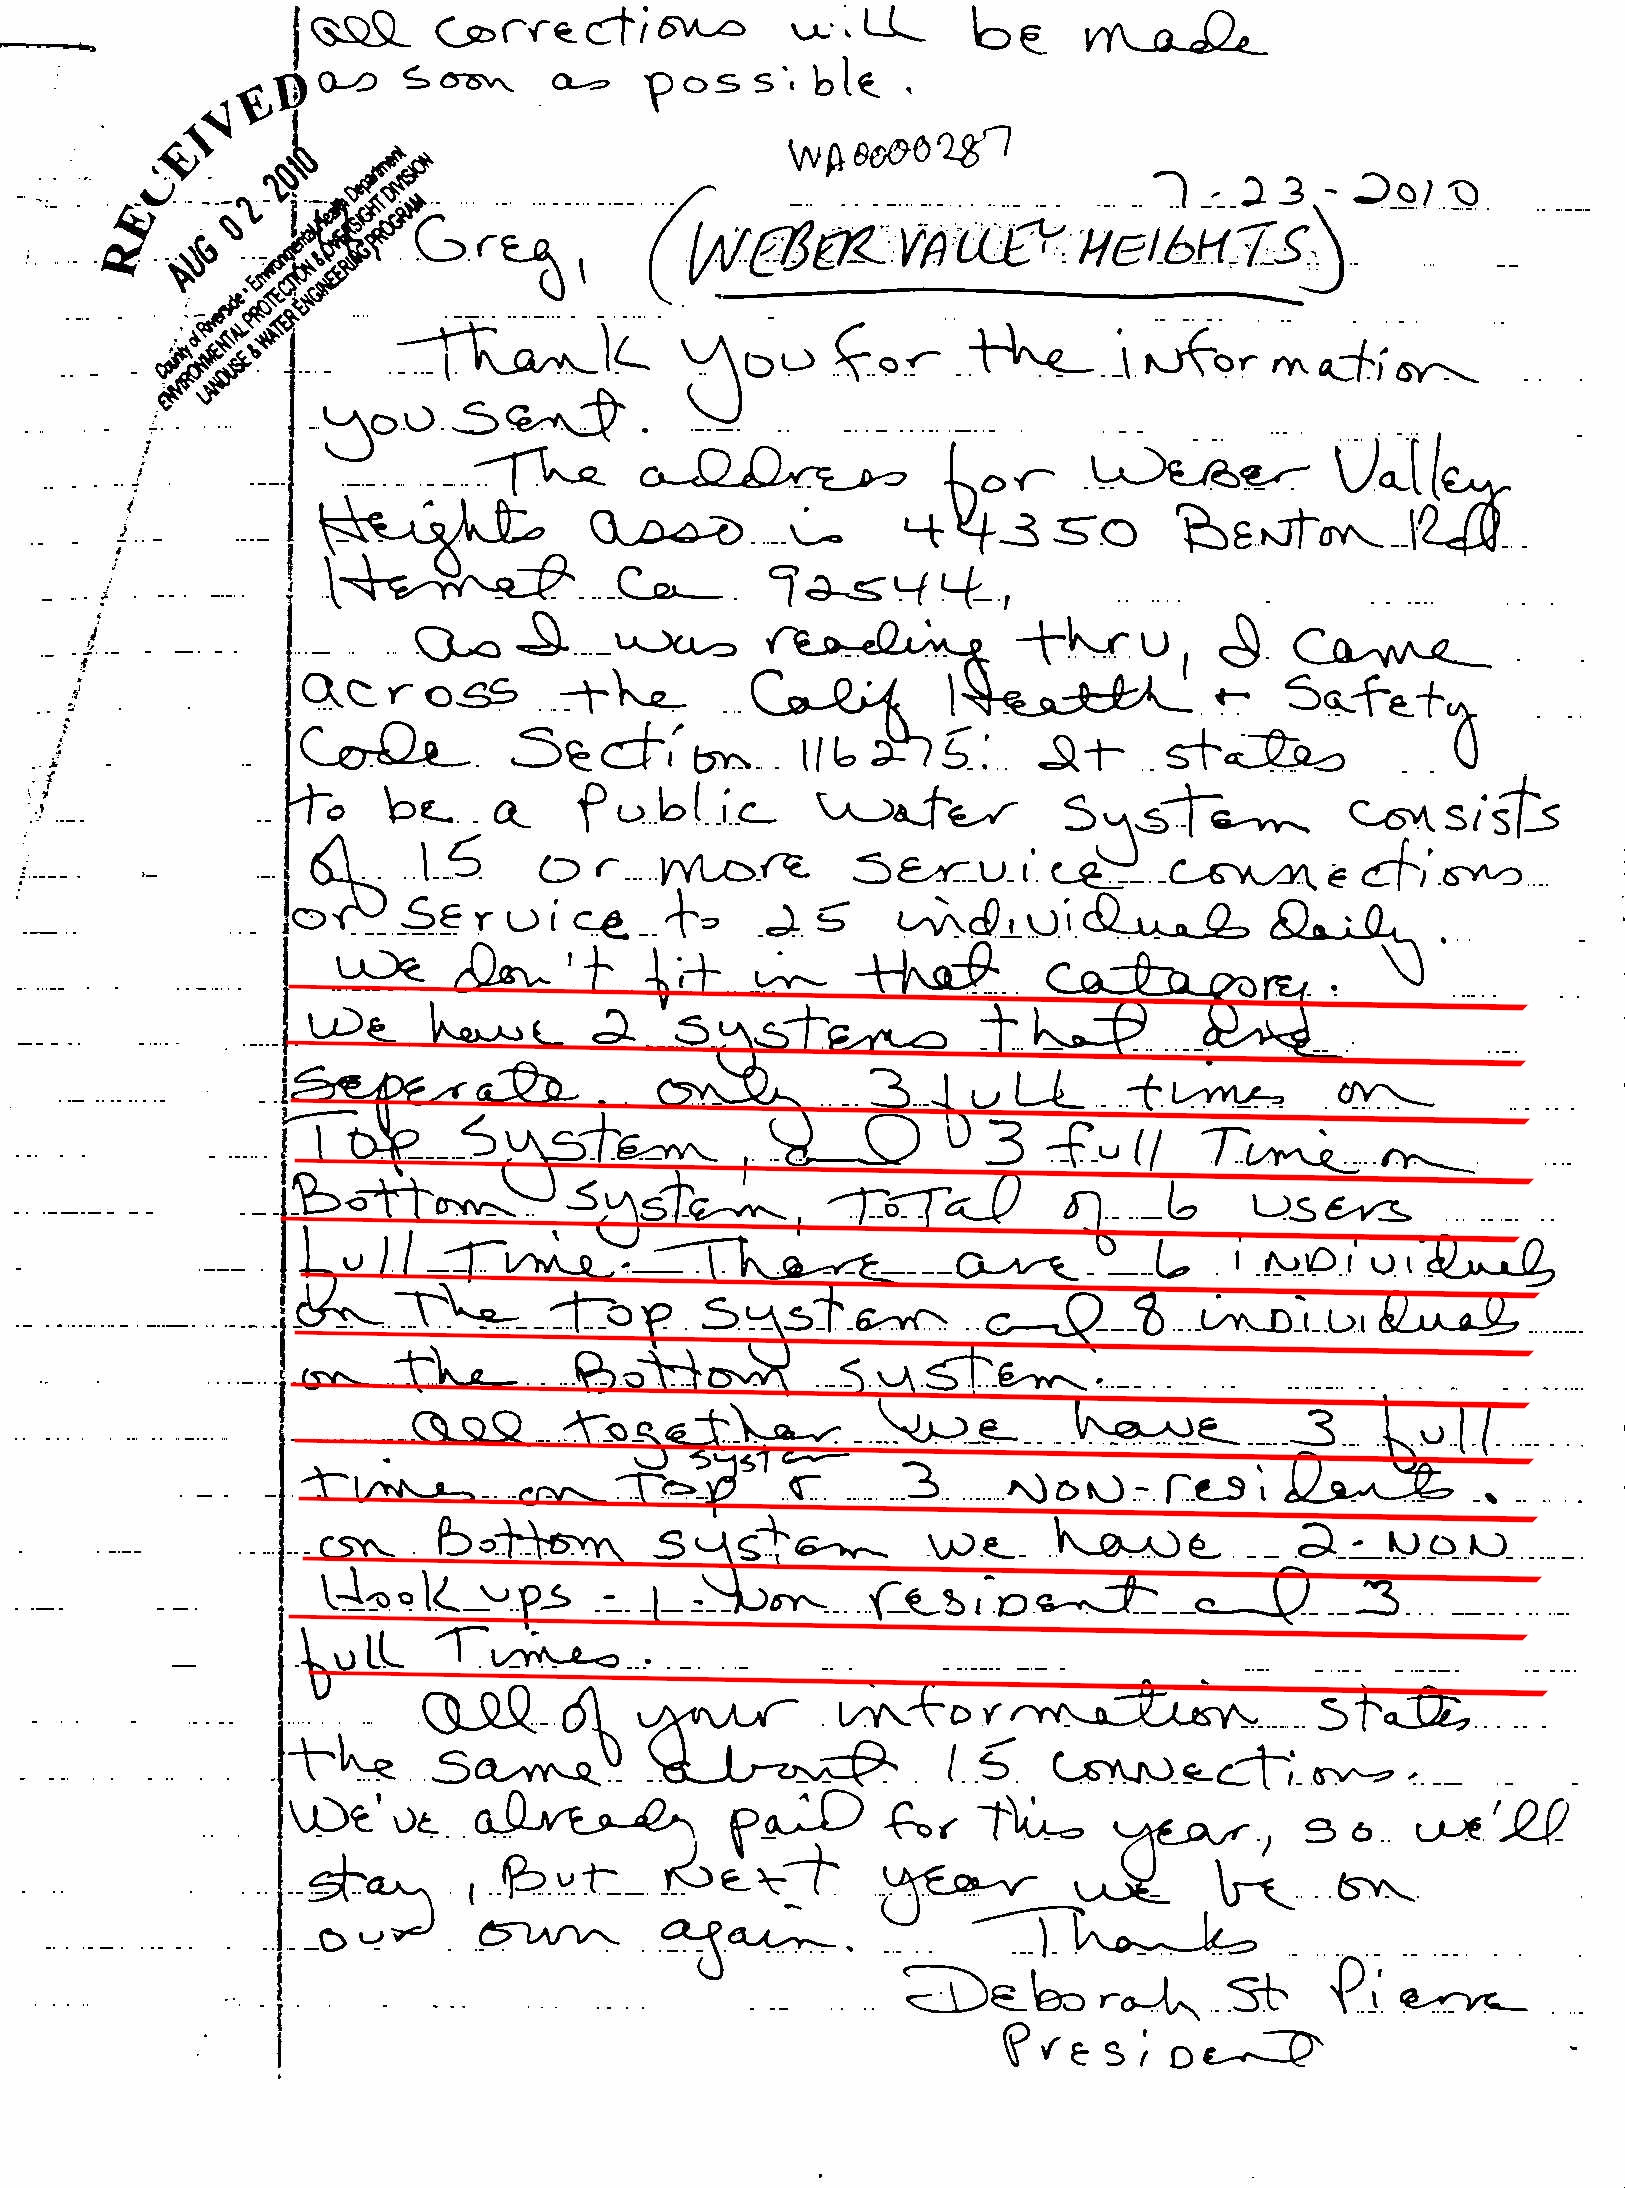 all corrections will be made
as soon as possible.
WA0000287
RECEIVED
AUG 02 2010
County of Riverside • Environmental Health Department
ENVIRONMENTAL PROTECTION & OVERSIGHT DIVISION
LANDUSE & WATER ENGINEERING PROGRAM
7-23-2010
Greg, (WEBER VALLEY HEIGHTS)
Thank you for the information
you sent.
The address for Weber Valley
Heights asso is 44350 Benton Rd
Hemet Ca 92544,
as I was reading thru, I came
across the Calif Health + Safety
Code Section 116275: It states
to be a Public Water System consists
of 15 or more service connections
or service to 25 individuals daily.
We don't fit in that catagory.
We have 2 systems that are
seperate. only 3 full times on
Top System, and 3 full Time on
Bottom system, Total of 6 users
full Time. There are 6 individuals
on The top system and 8 individuals
on the Bottom system.
All together we have 3 full
times on Top system & 3 Non-residents.
on Bottom system we have 2-Non
Hook ups - 1-Non resident and 3
full Times.
All of your information states
the same about 15 connections.
We've already paid for this year, so we'll
stay, But Next year we be on
our own again. Thanks
Deborah St Pierre
President